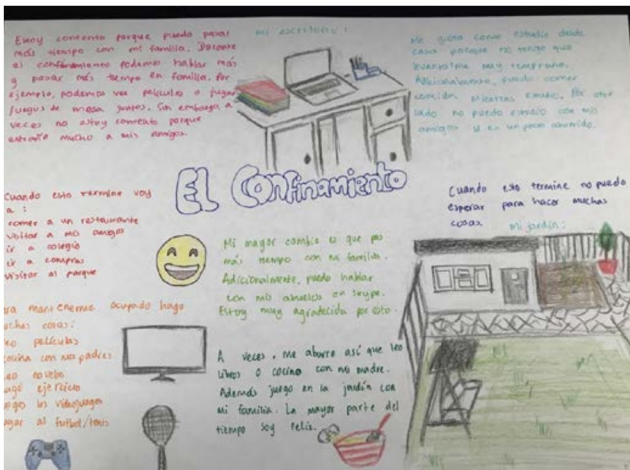 Estoy contenta porque puedo pasar
más tiempo con mi familia. Durante
el confinamiento podemos hablar más
y pasar más tiempo en familia. Por
ejemplo, podemos ver películas o jugar
juegos de mesa juntos. Sin embargo a
veces no estoy contenta porque
extraño mucho a mis amigos.
mi escritorio:
Me gusta como estudio desde
casa porque no tengo que
levantarme muy temprano.
Adicionalmente, puedo comer
comida mientras estudio. Por otro
lado no puedo estudio con mis
amigos y es un poco aburrido.
EL Confinamiento
Cuando esto termine voy
a:
comer a un restaurante
visitar a mis amigos
ir a colegio
ir a compras
visitar al parque
Mi mayor cambio es que paso
más tiempo con mi familia.
Adicionalmente, puedo hablar
con mis abuelos en skype.
Estoy muy agradecida por esto.
Cuando esto termine no puedo
esperar para hacer muchas
cosas.
mi jardín:
ra mantenerme ocupado hago
uchas cosas:
eo películas
cocina con mis padres
eo novelas
hago ejercicio
juegos los videojuegos
jugar al futbol/tenis
A veces, me aburro así que leo
libros o cocino con mi madre.
Además juego en la jardín con
mi familia. La mayor parte del
tiempo soy feliz.